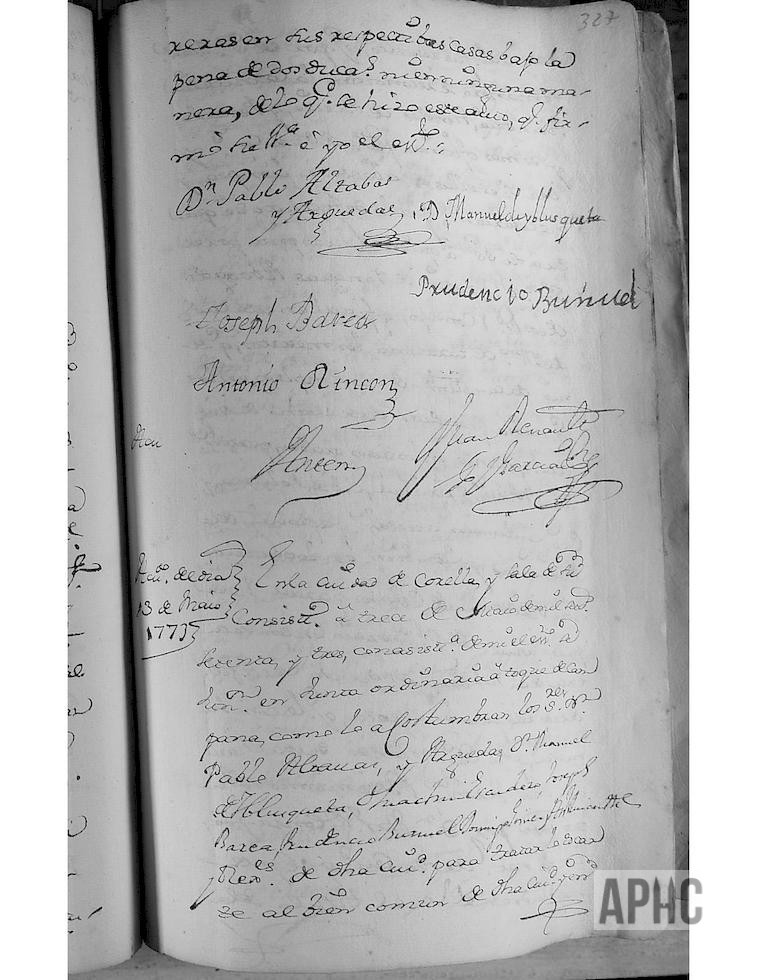 327
xexas en sus respectibas casas bajo la
pena de dos ducas. ni en ninguna ma-
nera, de lo q.e se hizo este auto, q.e fir-
mó e yo el ess.no
Dn. Pablo Altabas
y Arguedas, D Manuel de yblusqueta
Prudencio Buñuel
Joseph Barea
Antonio Rincon
Juan Renault
Garcia
Au.o de dia
13 de Maio
1773
En la ciudad de Corella, y sala de su
Consist.o á trece de Maio de mil set.s
setenta, y tres, con asist.a de mi el ess.no
en Junta ordinaria á toque de Cam
pana, como lo acostumbran los S.res Dn.
Pablo Altauas, y Arguedas, Dn. Manuel
de Yblusqueta, Joseph
Barea, Prudencio Buñuel
y Rex.es de dha Ciu.d para tratar
se al bien comun de dha Ciu.d
APHC